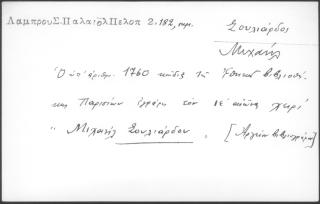 Λαμπρου Σ. Παλαιολ Πελοπ 2.182, σημ.
Σουλιάρδος
Μιχαήλ
Ὁ ὑπ' ἀριθμ. 1760 κώδιξ τῆς Ἐθνικῆς Βιβλιοθή-
κης Παρισίων ἐγράφη τὸν ΙΕ΄ αἰῶνα χειρὶ
" Μιχαὴλ Σουλιάρδου". [Ἀρχεῖον Βιβλιογράφων]